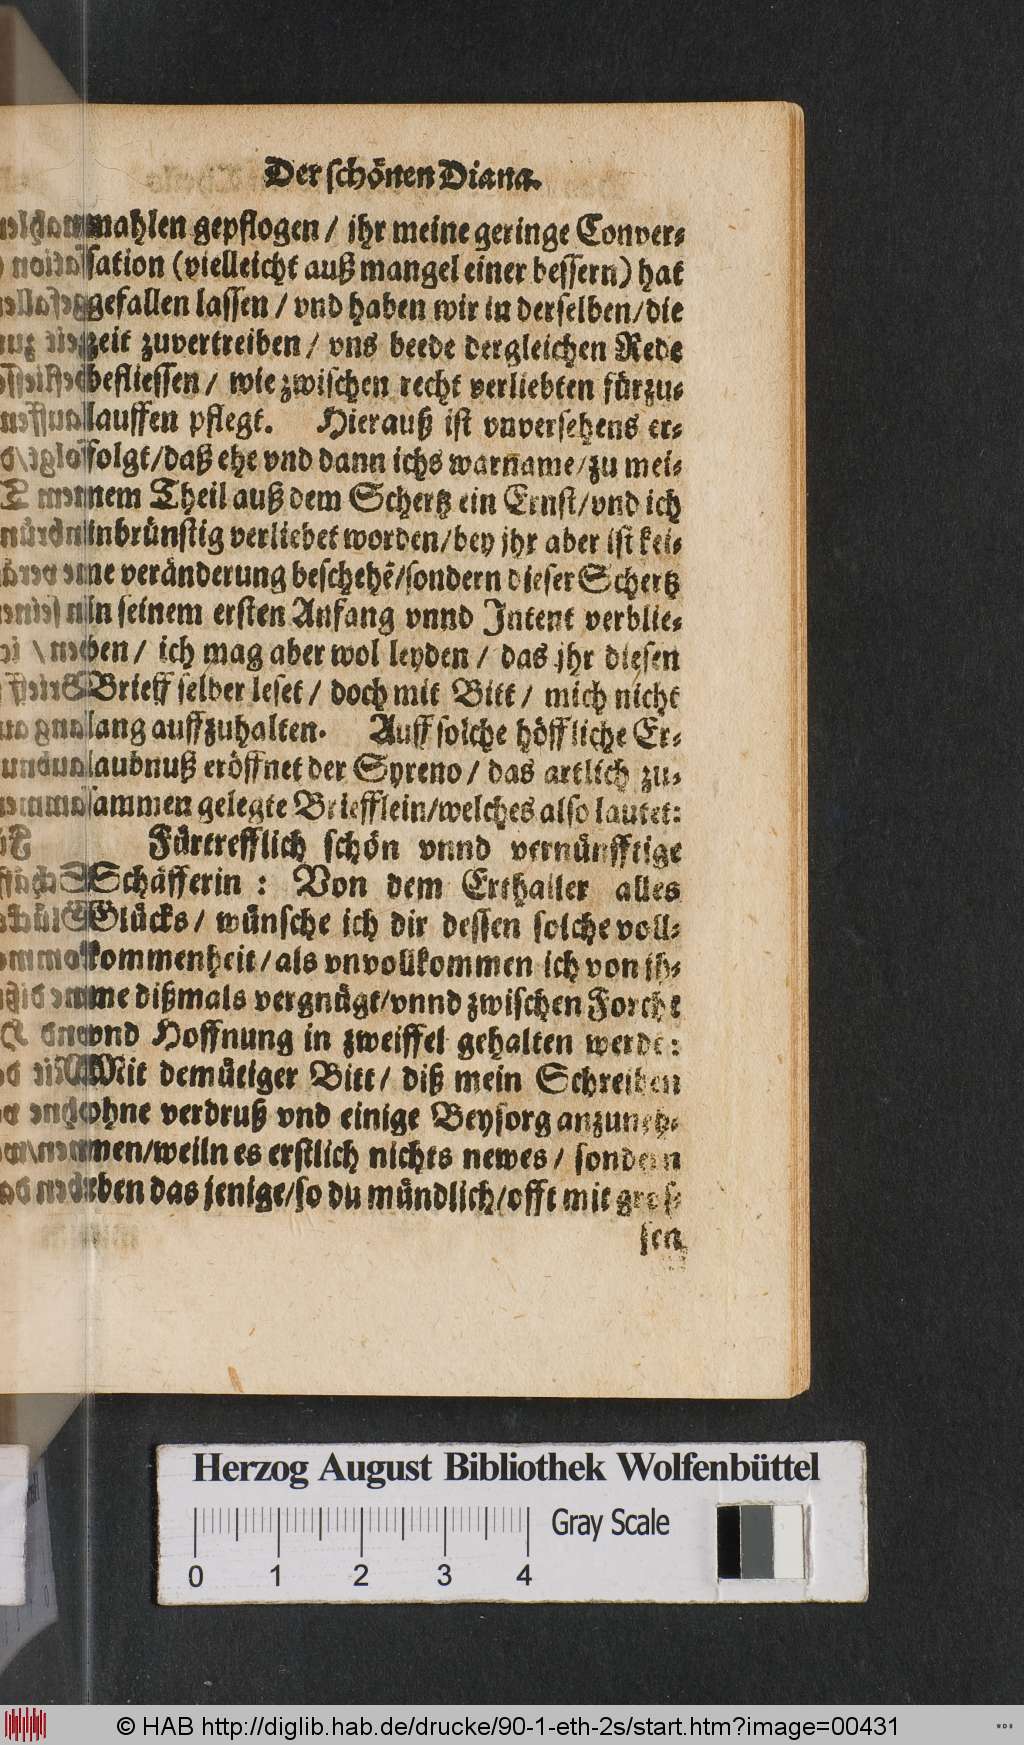 Der schönen Diana.
mahlen gepflogen / ihr meine geringe Conver-
sation (vielleicht auß mangel einer bessern) hat
gefallen lassen / vnd haben wir in derselben/die
zeit zuvertreiben / vns beede dergleichen Rede
befliessen / wie zwischen recht verliebten fürzu-
lauffen pflegt. Hierauß ist vnversehens er-
folgt/daß ehe vnd dann ichs warname/zu mei-
nem Theil auß dem Schertz ein Ernst/vnd ich
inbrünstig verliebet worden/bey jhr aber ist kei-
ne veränderung beschehẽ/sondern dieser Schertz
in seinem ersten Anfang vnnd Intent verblie-
ben / ich mag aber wol leyden / das jhr diesen
Brieff selber leset / doch mit Bitt / mich nicht
lang auffzuhalten. Auff solche höffliche Er-
laubnuß eröffnet der Syreno / das artlich zu-
sammen gelegte Briefflein/welches also lautet:
Fürtrefflich schön vnnd vernünfftige
Schäfferin : Von dem Erthailer alles
Glücks / wünsche ich dir dessen solche voll-
kommenheit / als vnvollkommen ich von ih-
me dißmals vergnügt/vnnd zwischen Forcht
vnd Hoffnung in zweiffel gehalten werde:
Mit demütiger Bitt / diß mein Schreiben
ohne verdruß vnd einige Beysorg anzuneh-
men/weiln es erstlich nichts newes / sondern
eben das jenige/so du mündlich/offt mit gros-
sen
Herzog August Bibliothek Wolfenbüttel
Gray Scale
0 1 2 3 4
© HAB http://diglib.hab.de/drucke/90-1-eth-2s/start.htm?image=00431